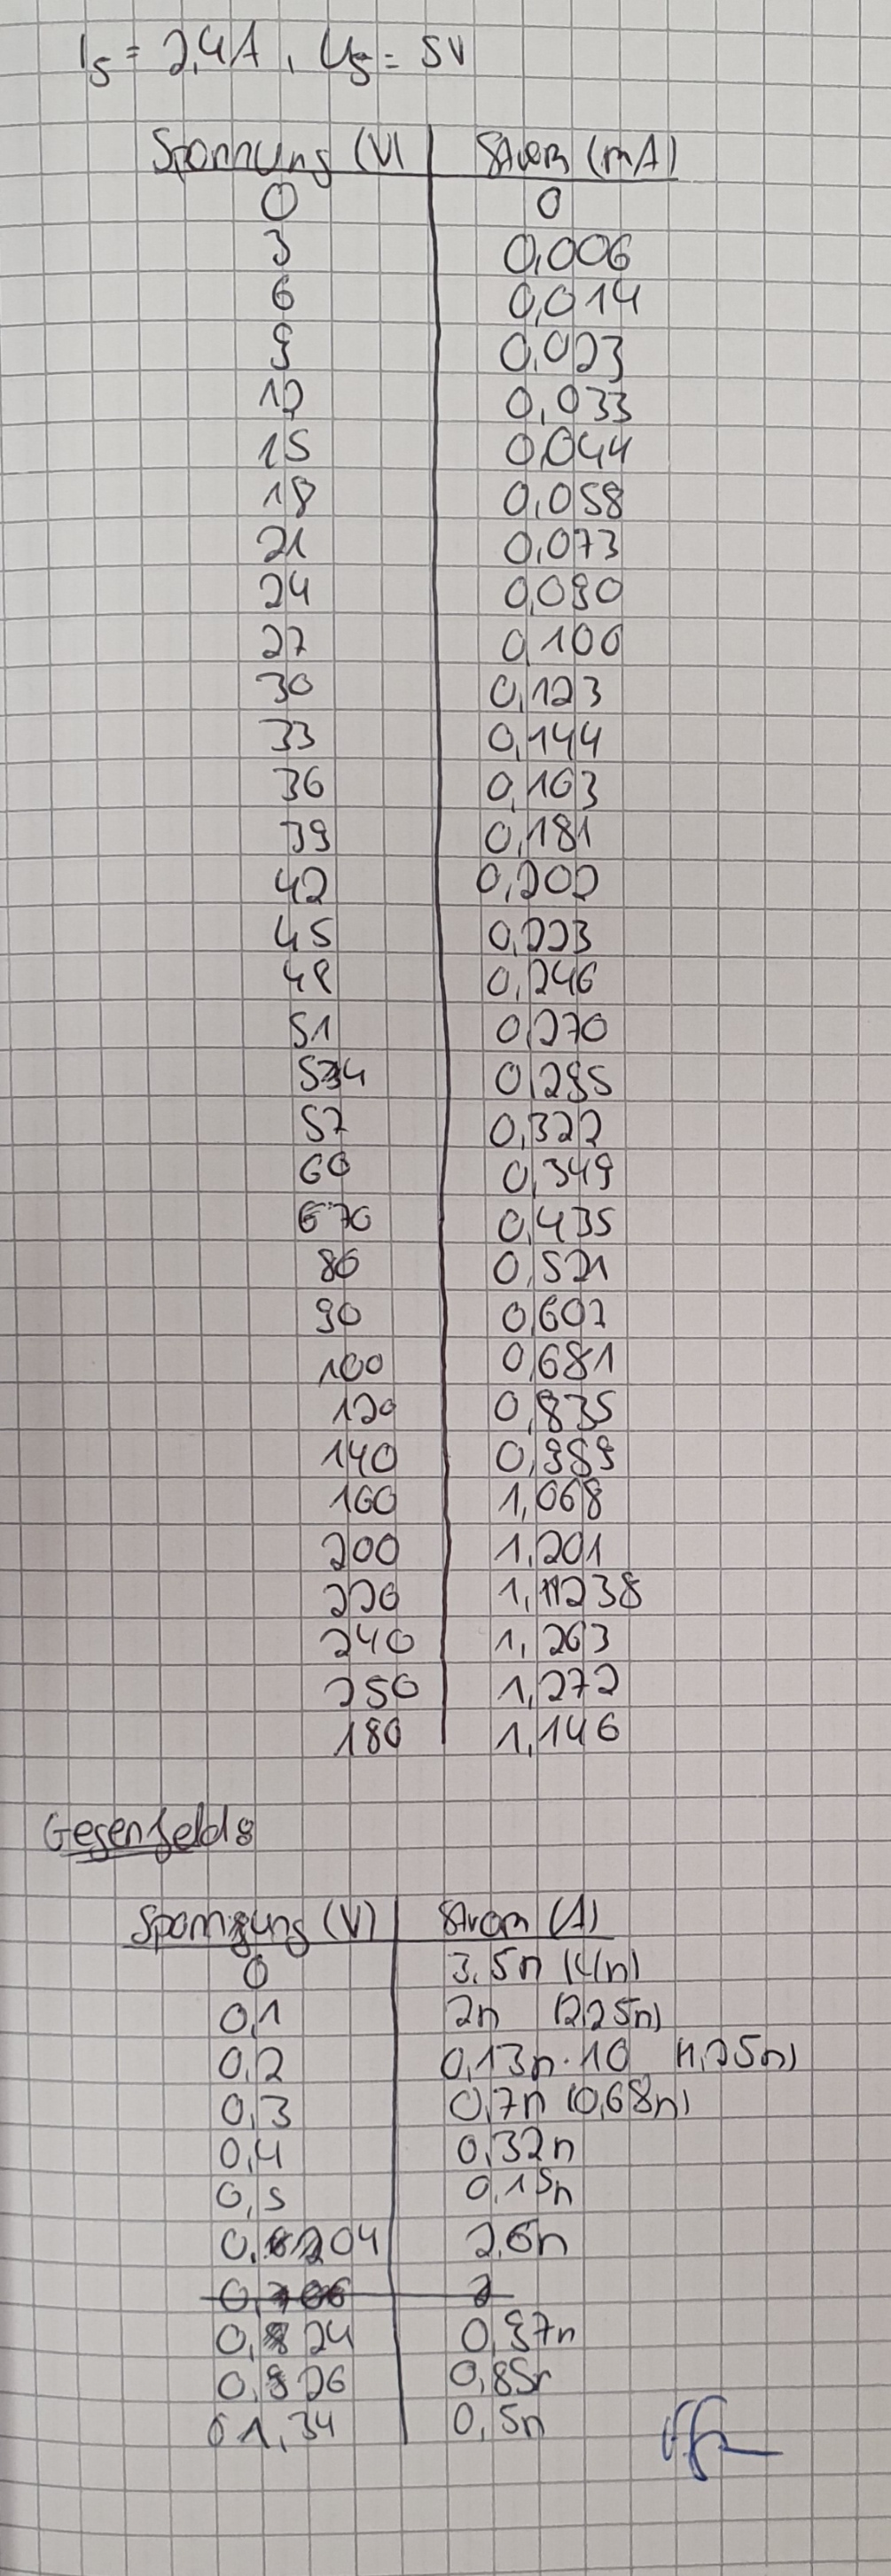 I_S = 2,4A, U_S = 5V
Spannung (V) Strom (mA)
0 0
3 0,006
6 0,014
9 0,023
12 0,033
15 0,044
18 0,058
21 0,073
24 0,090
27 0,106
30 0,123
33 0,144
36 0,163
39 0,181
42 0,202
45 0,223
48 0,246
51 0,270
54 0,295
57 0,322
60 0,349
70 0,435
80 0,521
90 0,602
100 0,681
120 0,835
140 0,989
160 1,068
200 1,201
220 1,238
240 1,263
250 1,272
180 1,146
Gegenfeld:
Spannung (V) Strom (A)
0 3,5n (4n)
0,1 2n (2,25n)
0,2 0,13n·10 (1,25n)
0,3 0,7n (0,68n)
0,4 0,32n
0,5 0,15n
0,04 2,6n
0,24 0,97n
0,26 0,85n
0,34 0,5n